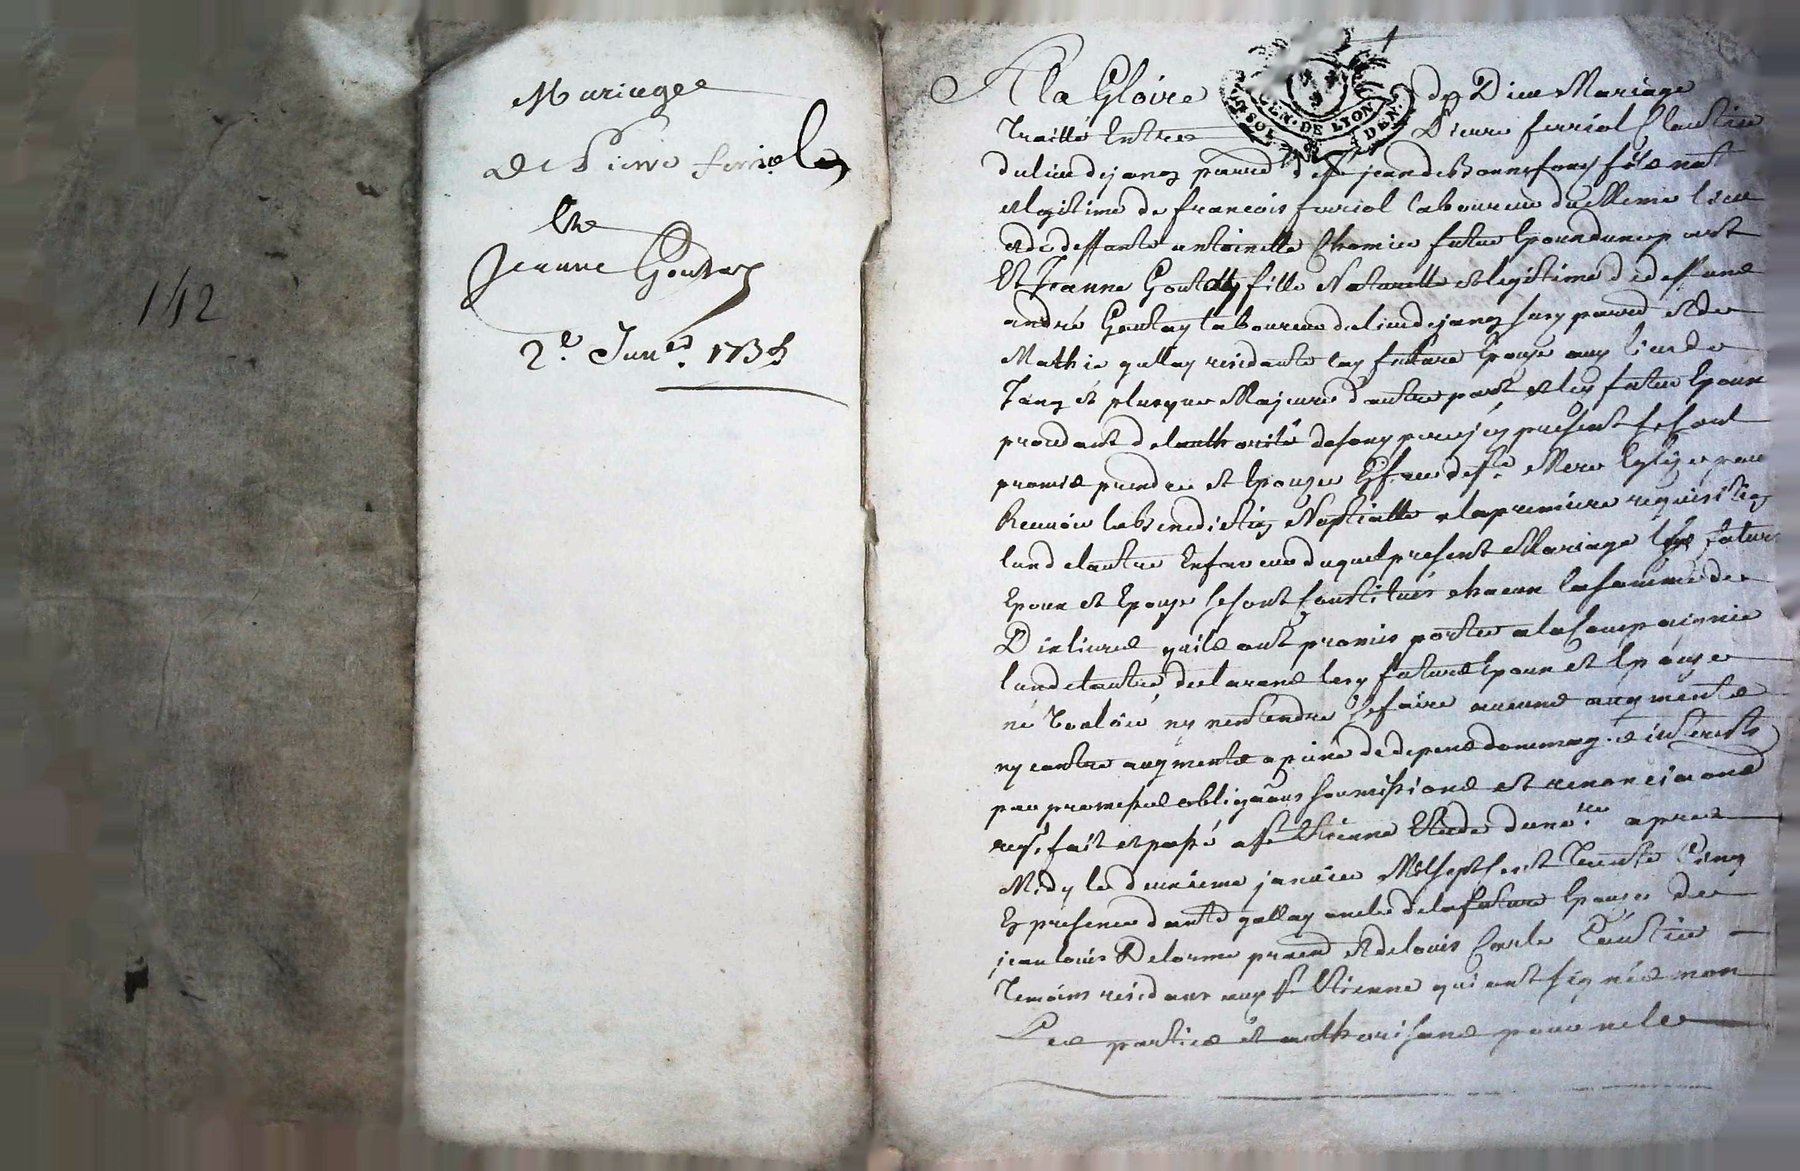 142
Mariage
De Pierre ferriol
Et
Jeanne Goutay
2e Janer 1735
A la Gloire de Dieu Mariage
GEN. DE LION
SOL DEN
Traitté Entre Pierre ferriol
du lieu de janon parre de St jean de Bonnefons fils nat
et legitime de francois ferriol laboureur du Meme lieu
et de deffante antoinette Chomier futur Epoux dune part
Et Jeanne Goutay fille Naturelle et legitime de deffunt
andré Goutay laboureur du lieu de janon parre et de
Mathie gallay residante future Epouse aux lieu de
Janon et plus que Majeure d'autre part et le futur Epoux
procedant de lauthorité de son pere present se sont
promis prendre et Epouser En face de Ste Mere Eglise pour
Recevoir la benediction Nuptialle a la premiere requisition
lun de lautre En faveur duquel present Mariage les futurs
Epoux et Epouse se sont Constitués chacun la somme de
Dix livres quils ont promis porter a la Compagnie
lun de lautre declarans les futurs Epoux et Epouse
ne vouloir ny entendre se faire aucune augmente
ny contre augmente a peine de depens dommag.s interests
par promesses obligaons soumissions et renonciaons
reqs. fait et passé a St Etienne Etude du nore apres
Midy le deuxieme janvier Mil sept cent Trente Cinq
En presence d'ante gallay oncle de la future Epouse de
jean louis Delorme pratn et de louis Carle
Temoins residans aux St Etienne qui ont signés non
Les parties et authorisans pour ne le